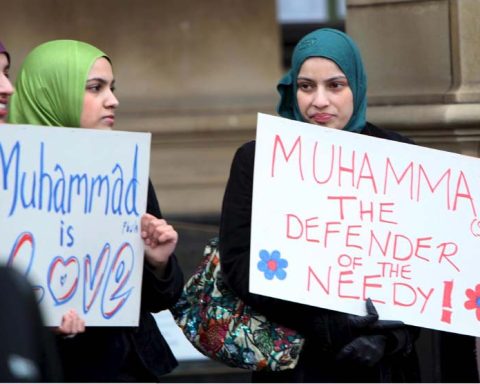 Muhammad
is
LOVE
MUHAMMA
THE
DEFENDER
OF THE
NEEDY!